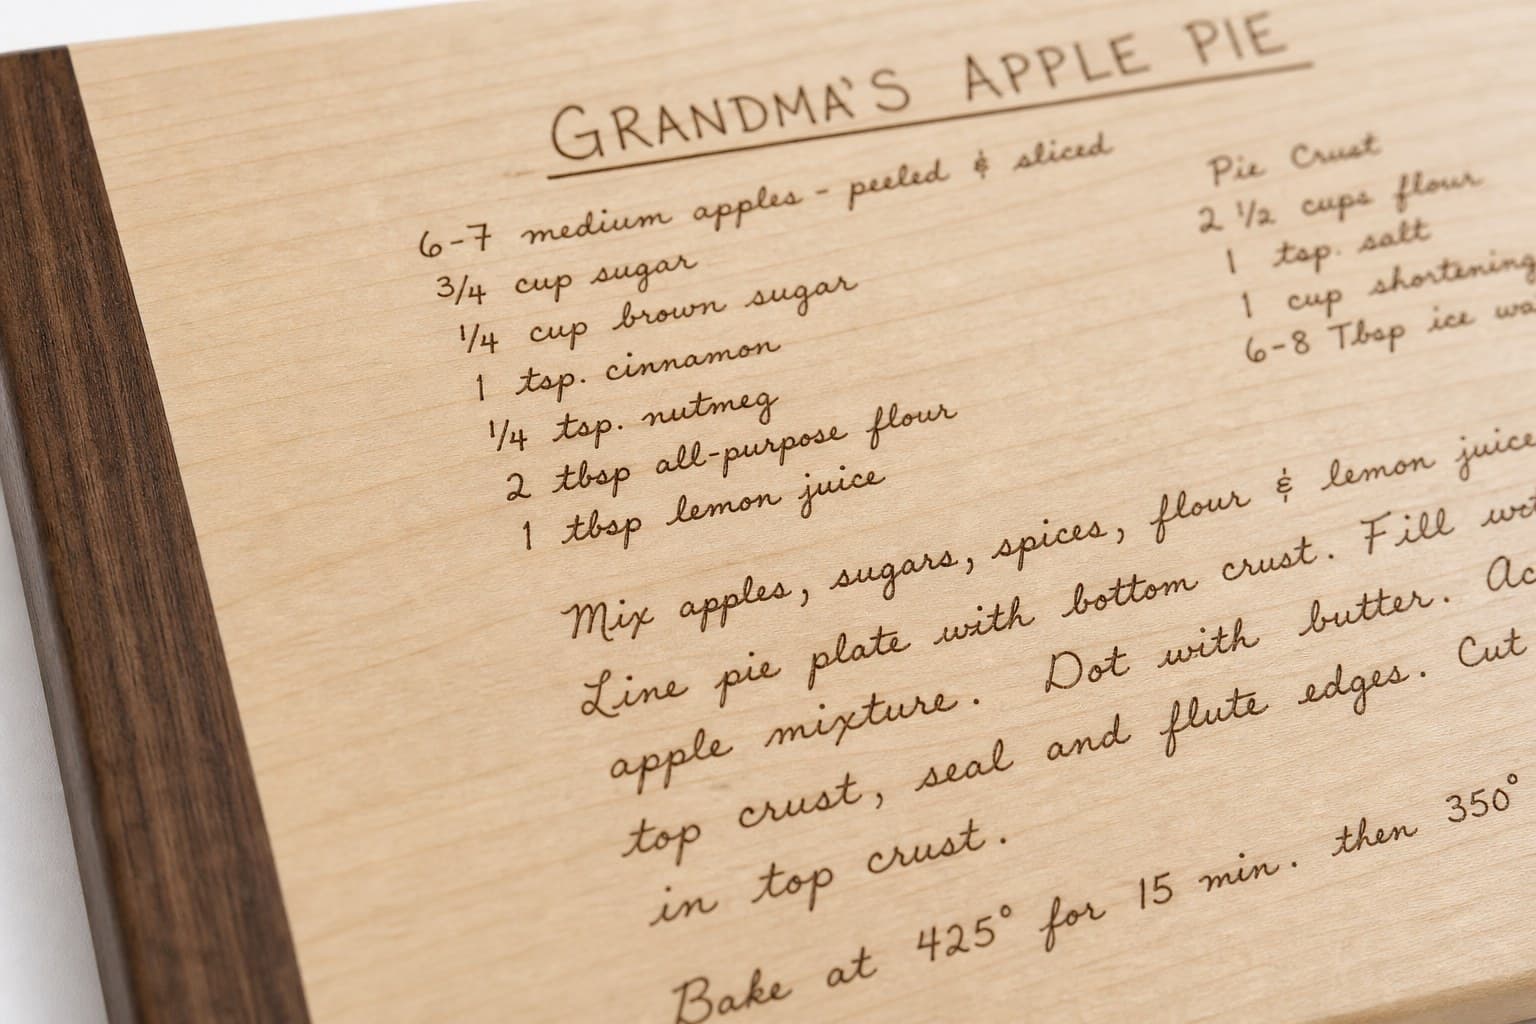 GRANDMA'S APPLE PIE
6-7 medium apples - peeled & sliced
3/4 cup sugar
1/4 cup brown sugar
1 tsp. cinnamon
1/4 tsp. nutmeg
2 tbsp all-purpose flour
1 tbsp lemon juice
Pie Crust
2 1/2 cups flour
1 tsp. salt
1 cup shortening
6-8 Tbsp ice
Mix apples, sugars, spices, flour & lemon juice
Line pie plate with bottom crust. Fill
apple mixture. Dot with butter.
top crust, seal and flute edges. Cut
in top crust.
Bake at 425° for 15 min. then 350°